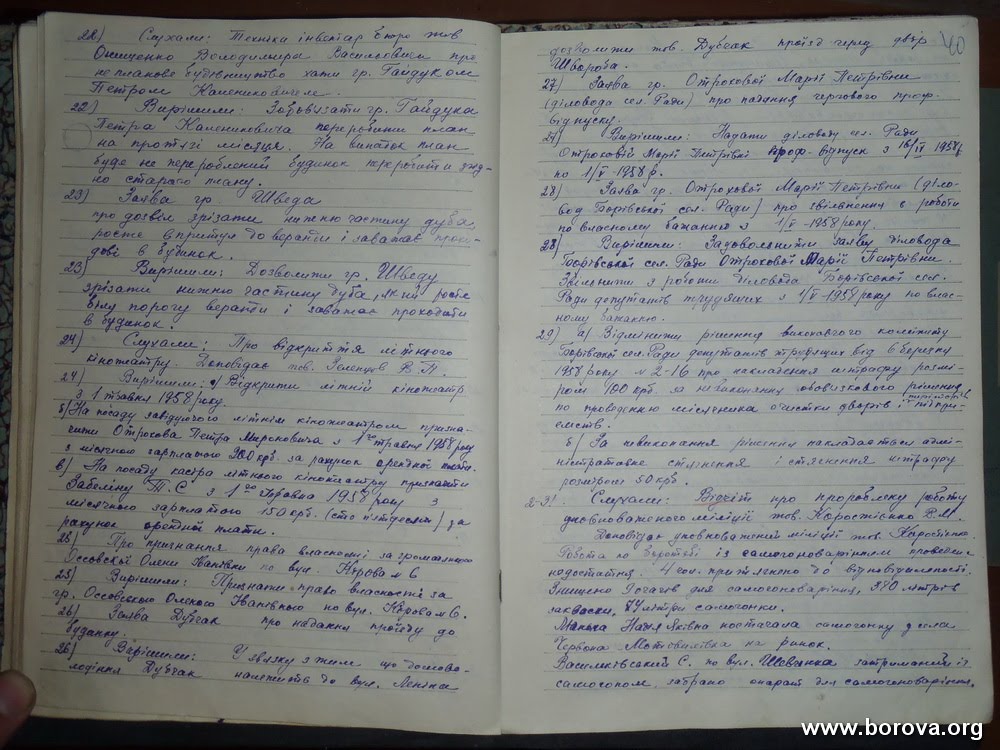 22) Слухали: Техніка інвентар бюро тов
Онищенко Володимира Васильовича про
непланове будівництво хати гр. Гайдуком
Петром Калениковичем.
22) Вирішили: Зобов'язати гр. Гайдука
Петра Калениковича переробити план
на протязі місяця. На випадок план
буде не перероблений будинок переробити згід-
но старого плану.
23) Заява гр Шведа
про дозвіл зрізати нижню частину дуба,
росте впритул до веранди і заважає прохо-
дові в будинок.
23) Вирішили: Дозволити гр. Шведу
зрізати нижню частину дуба, який росте
біля порогу веранди і заважає проходити
в будинок.
24) Слухали: Про відкриття літнього
кінотеатру. Доповідає тов.
24) Вирішили: а) Відкрити літній кінотеатр
з 1 травня 1958 року.
б) На посаду завідуючого літнім кінотеатром призна-
чити Отрохова Петра Мироновича з 1го травня 1958 року
з місячною зарплатою 300 крб. за рахунок орендної плати.
в) На посаду касіра літнього кінотеатру призначити
Забеліну Т С з 1го травня 1958 року з
місячною зарплатою 150 крб. (сто п'ятдесят) за
рахунок орендної плати.
25) Про признання права власності за громадянкою
Оссовської Олени Іванівни по вул. Кірова №6
25) Вирішили: Признати право власності за
гр. Оссовською Оленою Іванівною по вул. Кірова №6.
26) Заява Дубчак про надання проїзду до
будинку.
26) Вирішили: У звязку з тим що домово-
лодіння Дубчак належить до вул. Леніна
40
дозволити тов. Дубчак проїзд через двір
Швороба.
27) Заява гр. Отрохової Марії Петрівни
(діловода сел. Ради) про надання чергового проф.
відпуску.
27) Вирішили: Надати діловоду сел. Ради
Отроховій Марії Петрівні проф-відпуск з 16/IV 1958 р
по 1/V-1958 р.
28) Заява гр. Отрохової Марії Петрівни (діло-
вод Борівської сел. Ради) про звільнення з роботи
по власному бажанню з 1/V-1958 року.
28) Вирішили: Задовольнити заяву діловода
Борівської сел. Ради Отрохової Марії Петрівни.
Звільнити з роботи діловода Борівської сел.
Ради депутатів трудящих з 1/V-1958 року по влас-
ному бажанню.
29) а) Відмінити рішення виконавчого комітету
Борівської сел. Ради депутатів трудящих від 6 березня
1958 року № 2-16 про накладення штрафу розмі-
ром 100 крб. за невиконання обовязкового рішення
по проведенню місячника очистки дворів і територій підпри-
ємств.
б) За невиконання рішення накладається адмі-
ністративне стягнення і стягнення штрафу
розміром 50 крб.
2-3! Слухали: Відчіт про пророблену роботу
уповноваженого міліції тов. Коростієнко В.М.
Доповідає уповноважений міліції тов. Коростієнко.
Робота по боротьбі із самогоноварінням проведена
недостатня. 4 сел. притягнено до відповідальності.
Знищено 7 агачів для самогоноваріння, 370 літрів
закваски, 74 літри самогонки.
Надія Яківна постачала самогонку з села
Червона Мотовилівка на ринок.
Василківський С. по вул. Шевченка затриманий із
самогоном, забрано апарат для самогоноваріння.
www.borova.org